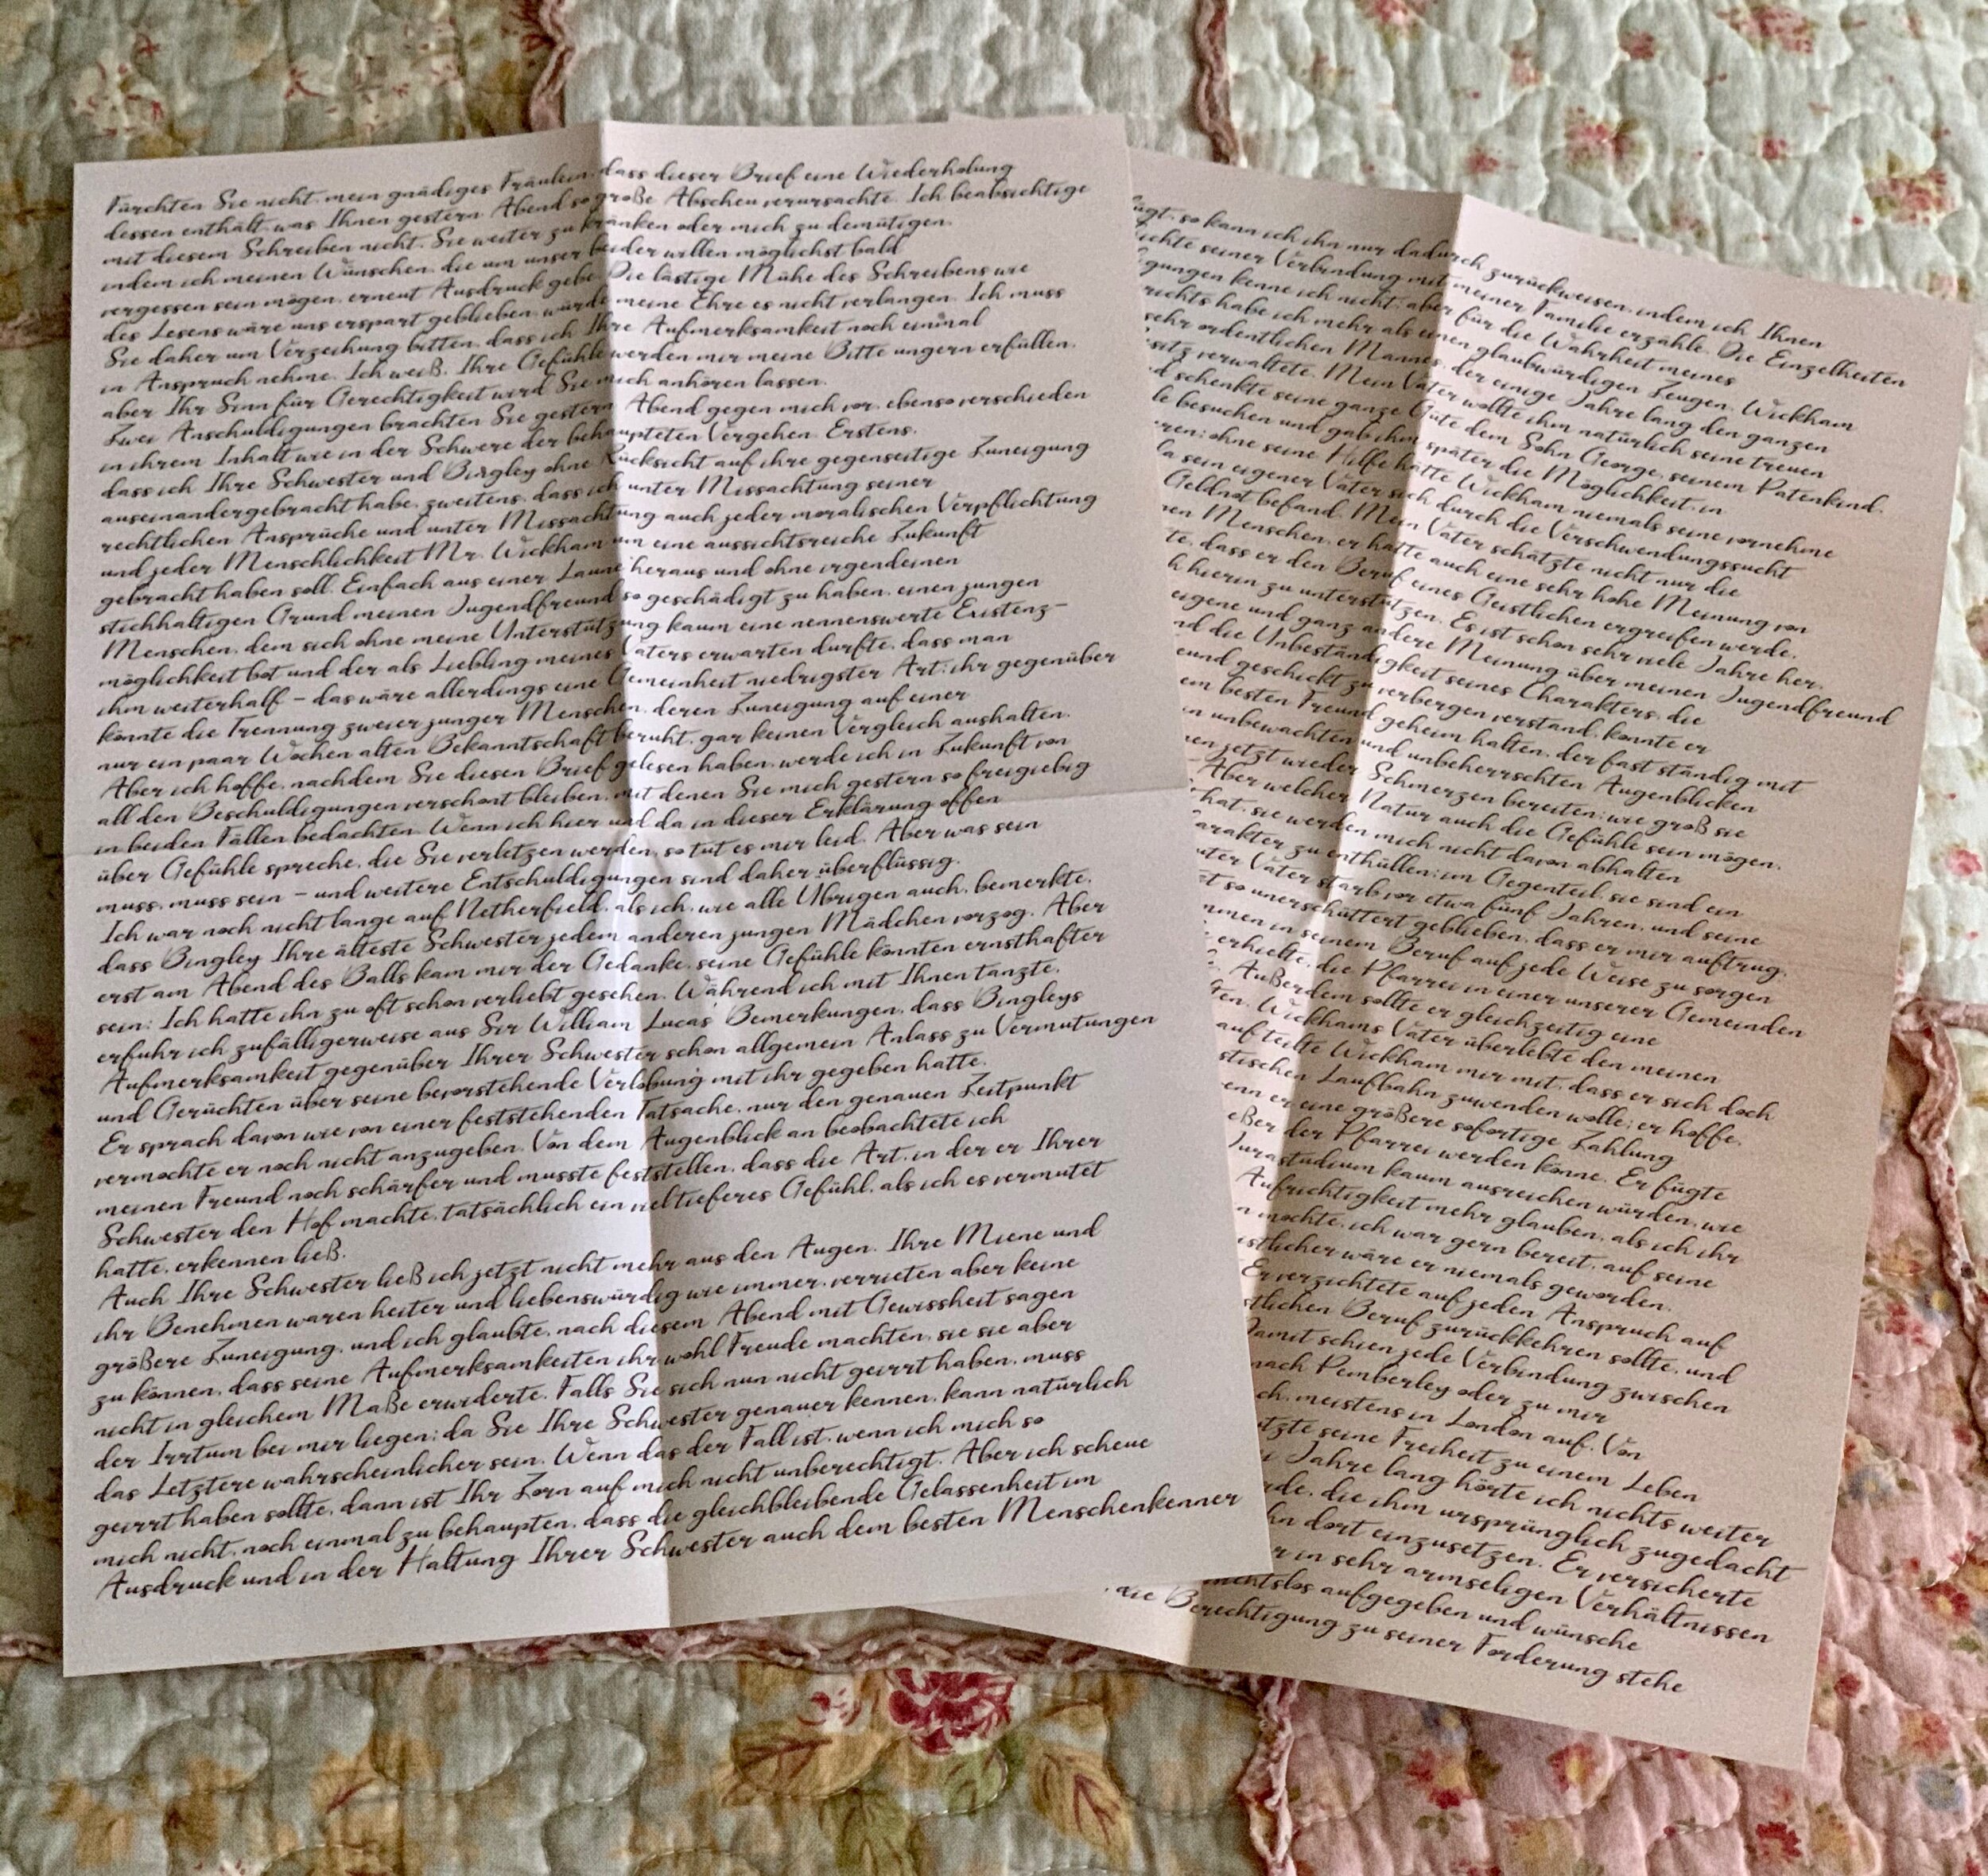 Fürchten Sie nicht, mein gnädiges Fräulein, dass dieser Brief eine Wiederholung
dessen enthält, was Ihnen gestern Abend so große Abscheu verursachte. Ich beabsichtige
mit diesem Schreiben nicht, Sie weiter zu kränken oder mich zu demütigen,
indem ich meinen Wünschen, die um unser beider willen möglichst bald
vergessen sein mögen, erneut Ausdruck gebe. Die lästige Mühe des Schreibens wie
des Lesens wäre uns erspart geblieben, würde meine Ehre es nicht verlangen. Ich muss
Sie daher um Verzeihung bitten, dass ich Ihre Aufmerksamkeit noch einmal
in Anspruch nehme. Ich weiß, Ihre Gefühle werden mir meine Bitte ungern erfüllen,
aber Ihr Sinn für Gerechtigkeit wird Sie mich anhören lassen.
Zwei Anschuldigungen brachten Sie gestern Abend gegen mich vor, ebenso verschieden
in ihrem Inhalt wie in der Schwere der behaupteten Vergehen. Erstens,
dass ich Ihre Schwester und Bingley ohne Rücksicht auf ihre gegenseitige Zuneigung
auseinandergebracht habe, zweitens, dass ich unter Missachtung seiner
rechtlichen Ansprüche und unter Missachtung auch jeder moralischen Verpflichtung
und jeder Menschlichkeit Mr. Wickham um eine aussichtsreiche Zukunft
gebracht haben soll. Einfach aus einer Laune heraus und ohne irgendeinen
stichhaltigen Grund meinen Jugendfreund so geschädigt zu haben, einen jungen
Menschen, dem sich ohne meine Unterstützung kaum eine nennenswerte Existenz-
möglichkeit bot und der als Liebling meines Vaters erwarten durfte, dass man
ihm weiterhalf – das wäre allerdings eine Gemeinheit niedrigster Art; ihr gegenüber
könnte die Trennung zweier junger Menschen, deren Zuneigung auf einer
nur ein paar Wochen alten Bekanntschaft beruht, gar keinen Vergleich aushalten.
Aber ich hoffe, nachdem Sie diesen Brief gelesen haben, werde ich in Zukunft von
all den Beschuldigungen verschont bleiben, mit denen Sie mich gestern so freigiebig
in beiden Fällen bedachten. Wenn ich hier und da in dieser Erklärung offen
über Gefühle spreche, die Sie verletzen werden, so tut es mir leid. Aber was sein
muss, muss sein – und weitere Entschuldigungen sind daher überflüssig.
Ich war noch nicht lange auf Netherfield, als ich, wie alle Übrigen auch, bemerkte,
dass Bingley Ihre älteste Schwester jedem anderen jungen Mädchen vorzog. Aber
erst am Abend des Balls kam mir der Gedanke, seine Gefühle könnten ernsthafter
sein; Ich hatte ihn zu oft schon verliebt gesehen. Während ich mit Ihnen tanzte,
erfuhr ich zufälligerweise aus Sir William Lucas' Bemerkungen, dass Bingleys
Aufmerksamkeit gegenüber Ihrer Schwester schon allgemein Anlass zu Vermutungen
und Gerüchten über seine bevorstehende Verlobung mit ihr gegeben hatte.
Er sprach davon wie von einer feststehenden Tatsache, nur den genauen Zeitpunkt
vermochte er noch nicht anzugeben. Von dem Augenblick an beobachtete ich
meinen Freund noch schärfer und musste feststellen, dass die Art, in der er Ihrer
Schwester den Hof machte, tatsächlich ein viel tieferes Gefühl, als ich es vermutet
hatte, erkennen ließ.
Auch Ihre Schwester ließ ich jetzt nicht mehr aus den Augen. Ihre Miene und
ihr Benehmen waren heiter und liebenswürdig wie immer, verrieten aber keine
größere Zuneigung, und ich glaubte, nach diesem Abend mit Gewissheit sagen
zu können, dass seine Aufmerksamkeiten ihr wohl Freude machten, sie sie aber
nicht in gleichem Maße erwiderte. Falls Sie sich nun nicht geirrt haben, muss
der Irrtum bei mir liegen; da Sie Ihre Schwester genauer kennen, kann natürlich
das Letztere wahrscheinlicher sein. Wenn das der Fall ist, wenn ich mich so
geirrt haben sollte, dann ist Ihr Zorn auf mich nicht unberechtigt. Aber ich scheue
mich nicht, noch einmal zu behaupten, dass die gleichbleibende Gelassenheit im
Ausdruck und in der Haltung Ihrer Schwester auch dem besten Menschenkenner
so kann ich ihn nur dadurch zurückweisen, indem ich Ihnen
seiner Verbindung mit meiner Familie erzähle. Die Einzelheiten
kenne ich nicht, aber für die Wahrheit meines
habe ich mehr als einen glaubwürdigen Zeugen. Wickham
sehr ordentlichen Mannes, der einige Jahre lang den ganzen
verwaltete. Mein Vater wollte ihm natürlich seine treuen
schenkte seine ganze Güte dem Sohn George, seinem Patenkind.
besuchen und gab ihm später die Möglichkeit, in
ohne seine Hilfe hätte Wickham niemals seine vornehme
sein eigener Vater sich durch die Verschwendungssucht
Geldnot befand. Mein Vater schätzte nicht nur die
Menschen, er hatte auch eine sehr hohe Meinung von
dass er den Beruf eines Geistlichen ergreifen werde,
hierin zu unterstützen. Es ist schon sehr viele Jahre her,
eigene und ganz andere Meinung über meinen Jugendfreund
die Unbeständigkeit seines Charakters, die
geschickt zu verbergen verstand, konnte er
besten Freund geheim halten, der fast ständig mit
unbewachten und unbeherrschten Augenblicken
jetzt wieder Schmerzen bereiten; wie groß sie
Aber welcher Natur auch die Gefühle sein mögen,
hat, sie werden mich nicht davon abhalten
zu enthüllen; im Gegenteil, sie sind ein
Vater starb vor etwa fünf Jahren, und seine
so unerschüttert geblieben, dass er mir auftrug,
in seinem Beruf auf jede Weise zu sorgen
erhielte, die Pfarrei in einer unserer Gemeinden
Außerdem sollte er gleichzeitig eine
Wickhams Vater überlebte den meinen
auf teilte Wickham mir mit, dass er sich doch
Laufbahn zuwenden wolle; er hoffe,
er eine größere sofortige Zahlung
der Pfarrei werden könne. Er fügte
Jurastudium kaum ausreichen würden, wie
Aufrichtigkeit mehr glauben, als ich ihr
mochte, ich war gern bereit, auf seine
wäre er niemals geworden.
Er verzichtete auf jeden Anspruch auf
Beruf zurückkehren sollte, und
Damit schien jede Verbindung zwischen
nach Pemberley oder zu mir
meistens in London auf. Von
seine Freiheit zu einem Leben
Jahre lang hörte ich nichts weiter
die ihm ursprünglich zugedacht
dort einzusetzen. Er versicherte
in sehr armseligen Verhältnissen
aufgegeben und wünsche
die Berechtigung zu seiner Forderung stehe